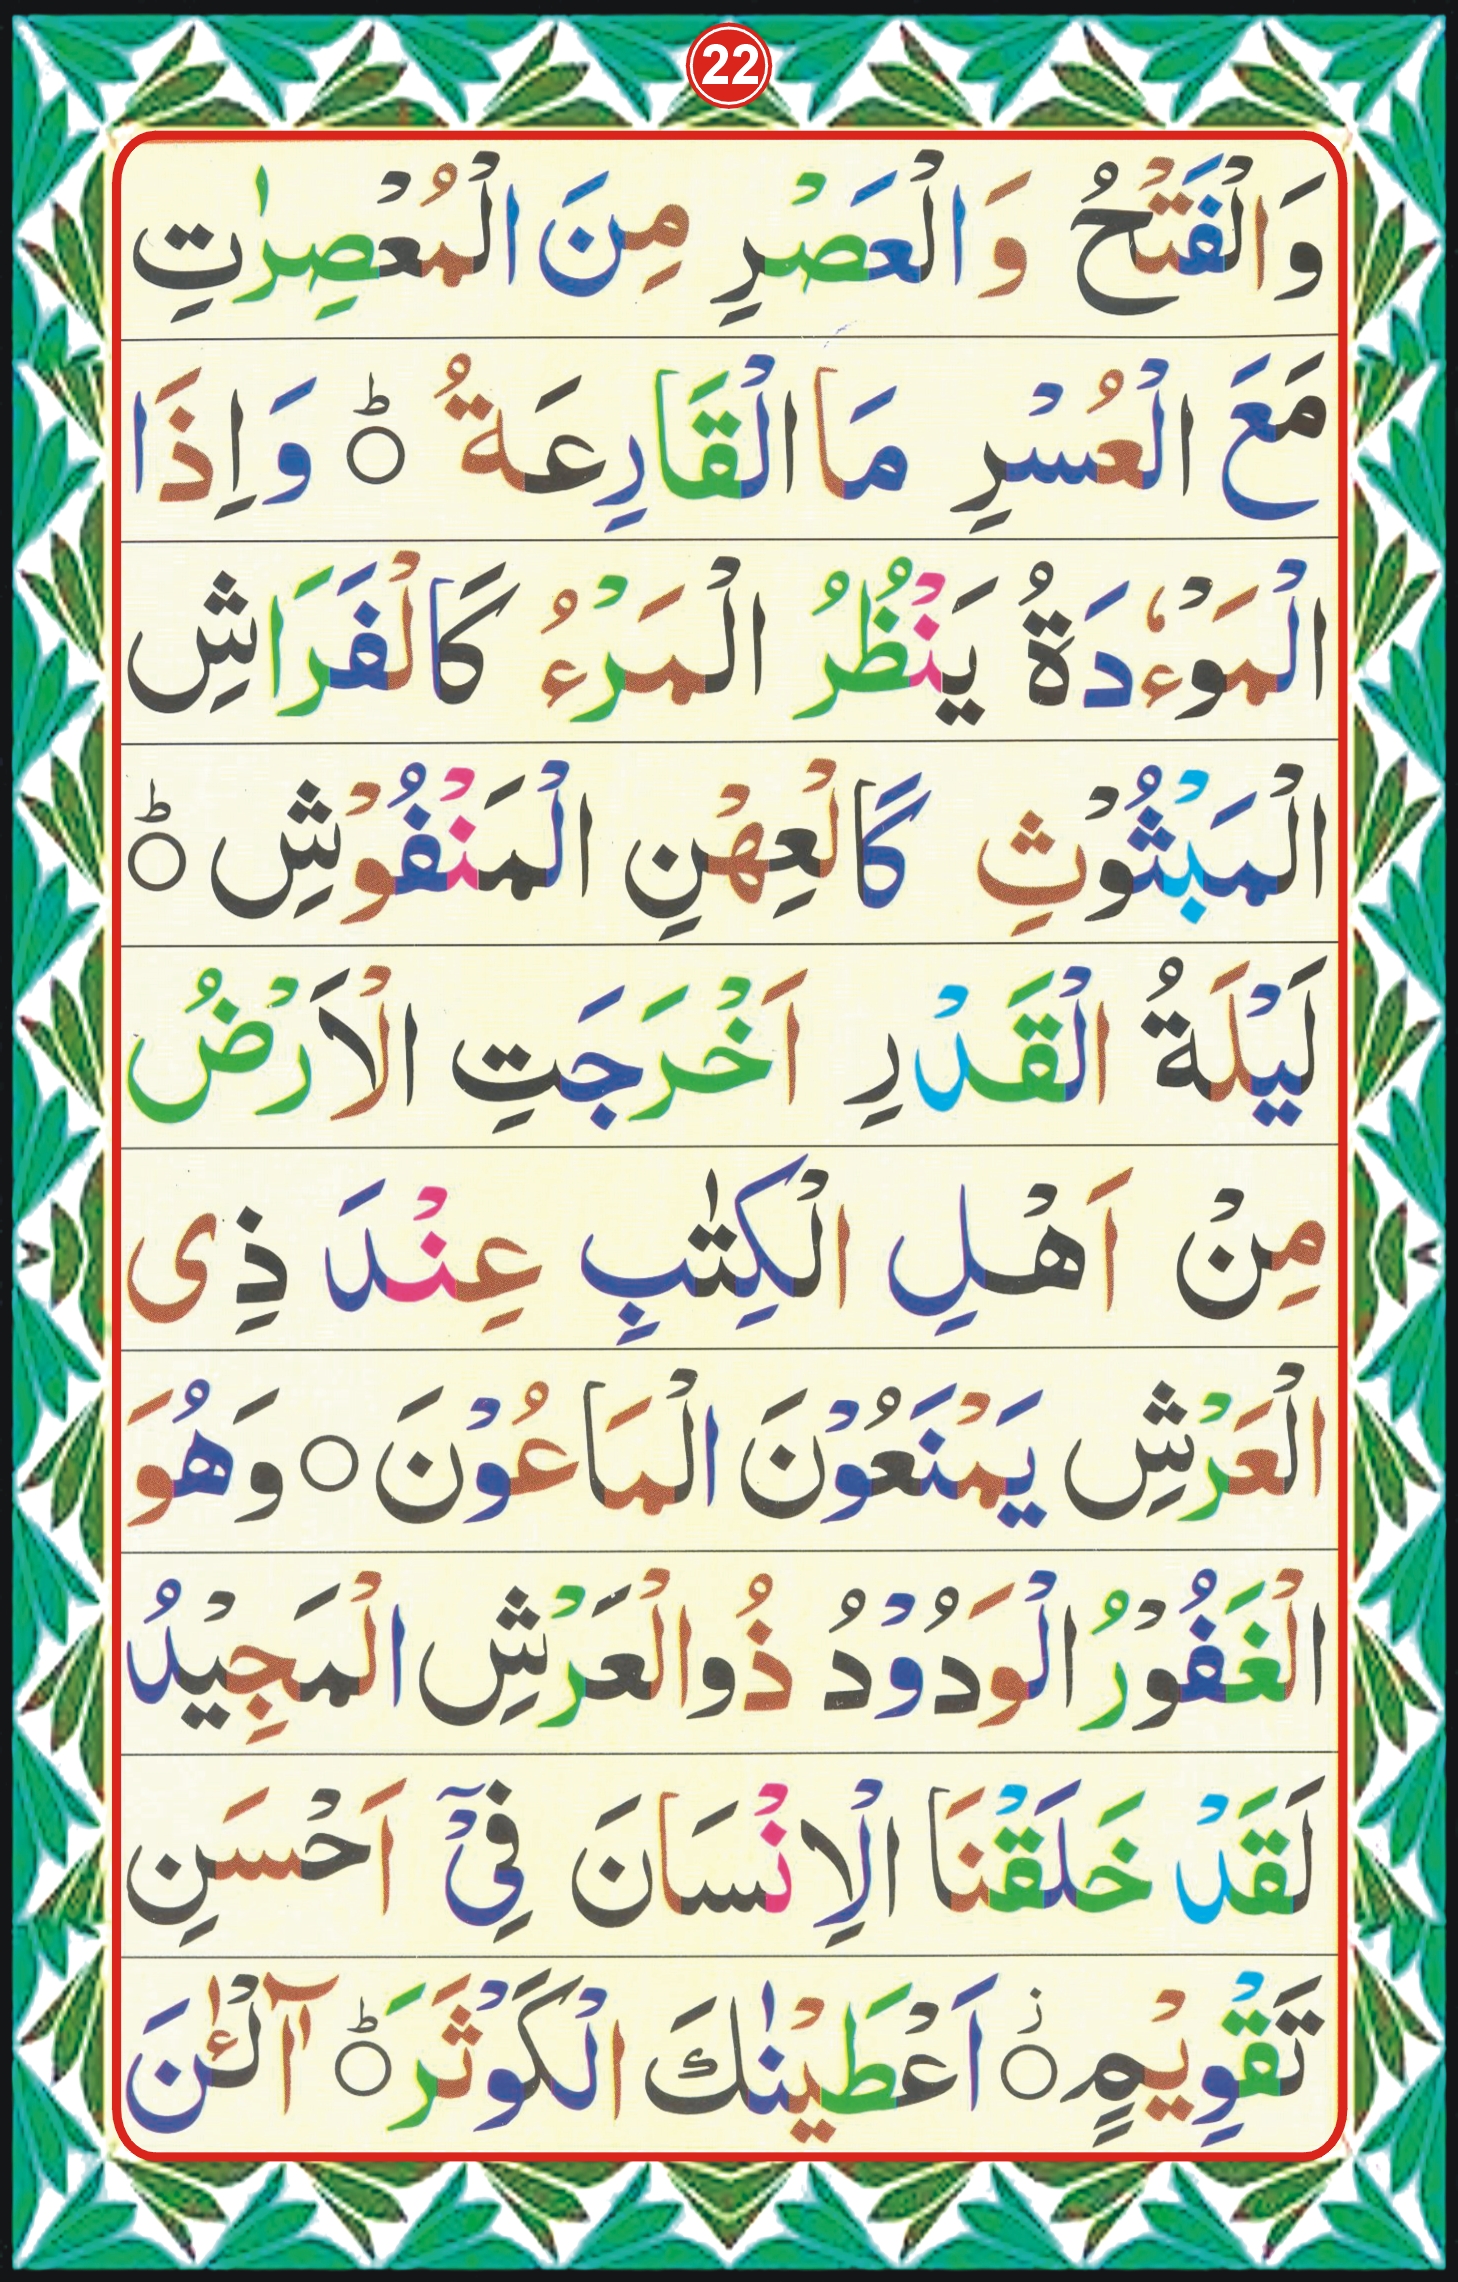 22
وَالْفَتْحُ وَالْعَصْرِ مِنَ الْمُعْصِرٰتِ
مَعَ الْعُسْرِ مَا الْقَارِعَةُ ؕ وَاِذَا
الْمَوْءٗدَةُ يَنْظُرُ الْمَرْءُ كَالْفَرَاشِ
الْمَبْثُوْثِ كَالْعِهْنِ الْمَنْفُوْشِ ؕ
لَيْلَةُ الْقَدْرِ اَخْرَجَتِ الْاَرْضُ
مِنْ اَهْلِ الْكِتٰبِ عِنْدَ ذِى
الْعَرْشِ يَمْنَعُوْنَ الْمَاعُوْنَ ○ وَهُوَ
الْغَفُوْرُ الْوَدُوْدُ ذُوالْعَرْشِ الْمَجِيْدُ
لَقَدْ خَلَقْنَا الْاِنْسَانَ فِىْٓ اَحْسَنِ
تَقْوِيْمٍ ○ؗ اَعْطَيْنٰكَ الْكَوْثَرَ ○ؕ آٰلْئٰنَ